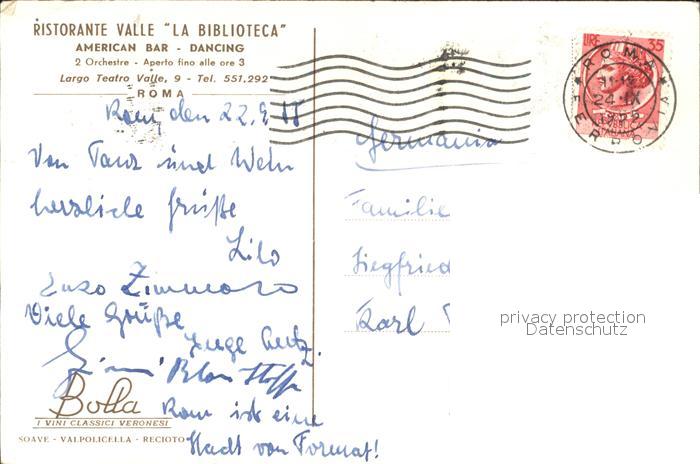 RISTORANTE VALLE "LA BIBLIOTECA"
AMERICAN BAR - DANCING
2 Orchestre - Aperto fino alle ore 3
Largo Teatro Valle, 9 - Tel. 551.292
ROMA
Rom, den 22.9.
Von Tanz und Wein
herzliche Grüße
Lilo
Enzo Zimmaro
Viele Grüße
Inge
Bolla
I VINI CLASSICI VERONESI
SOAVE - VALPOLICELLA - RECIOTO
Rom ist eine
Stadt von Format!
LIRE 35
ROMA
24 IX
FERROVIA
Germania
Familie
Siegfried
Karl
privacy protection
Datenschutz